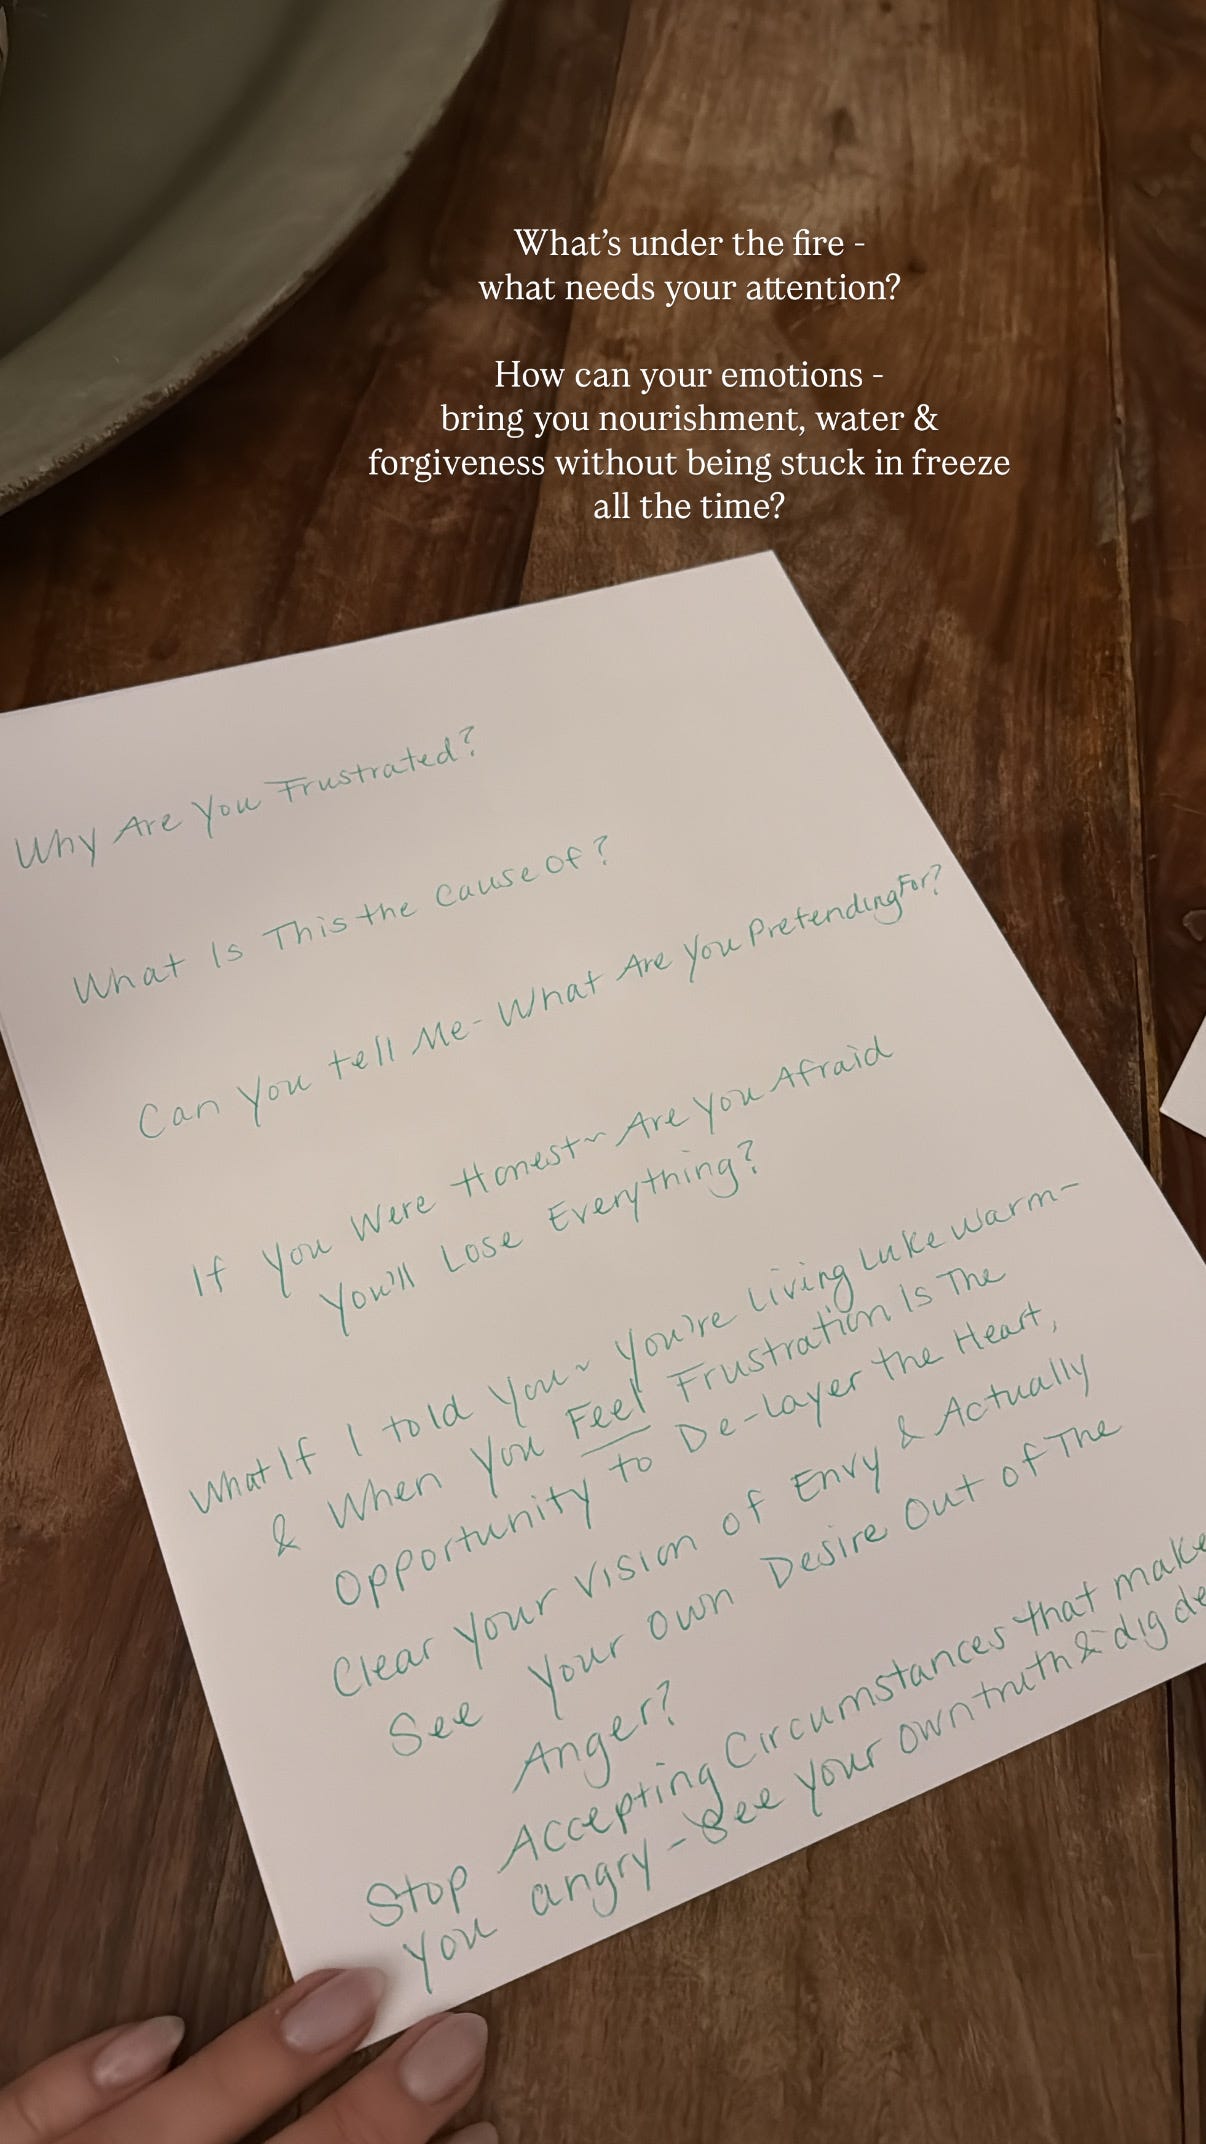 What's under the fire -
what needs your attention?
How can your emotions -
bring you nourishment, water &
forgiveness without being stuck in freeze
all the time?
Why Are You Frustrated?
What Is This the Cause Of?
Can You tell Me - What Are You Pretending For?
If You Were Honest ~ Are You Afraid
You'll Lose Everything?
What If I told You ~ You're Living Luke Warm -
& When You Feel Frustration Is The
Opportunity to De-Layer the Heart,
Clear Your Vision of Envy & Actually
See Your Own Desire Out Of The
Anger?
Stop Accepting Circumstances that make
You angry - See Your own truth & dig